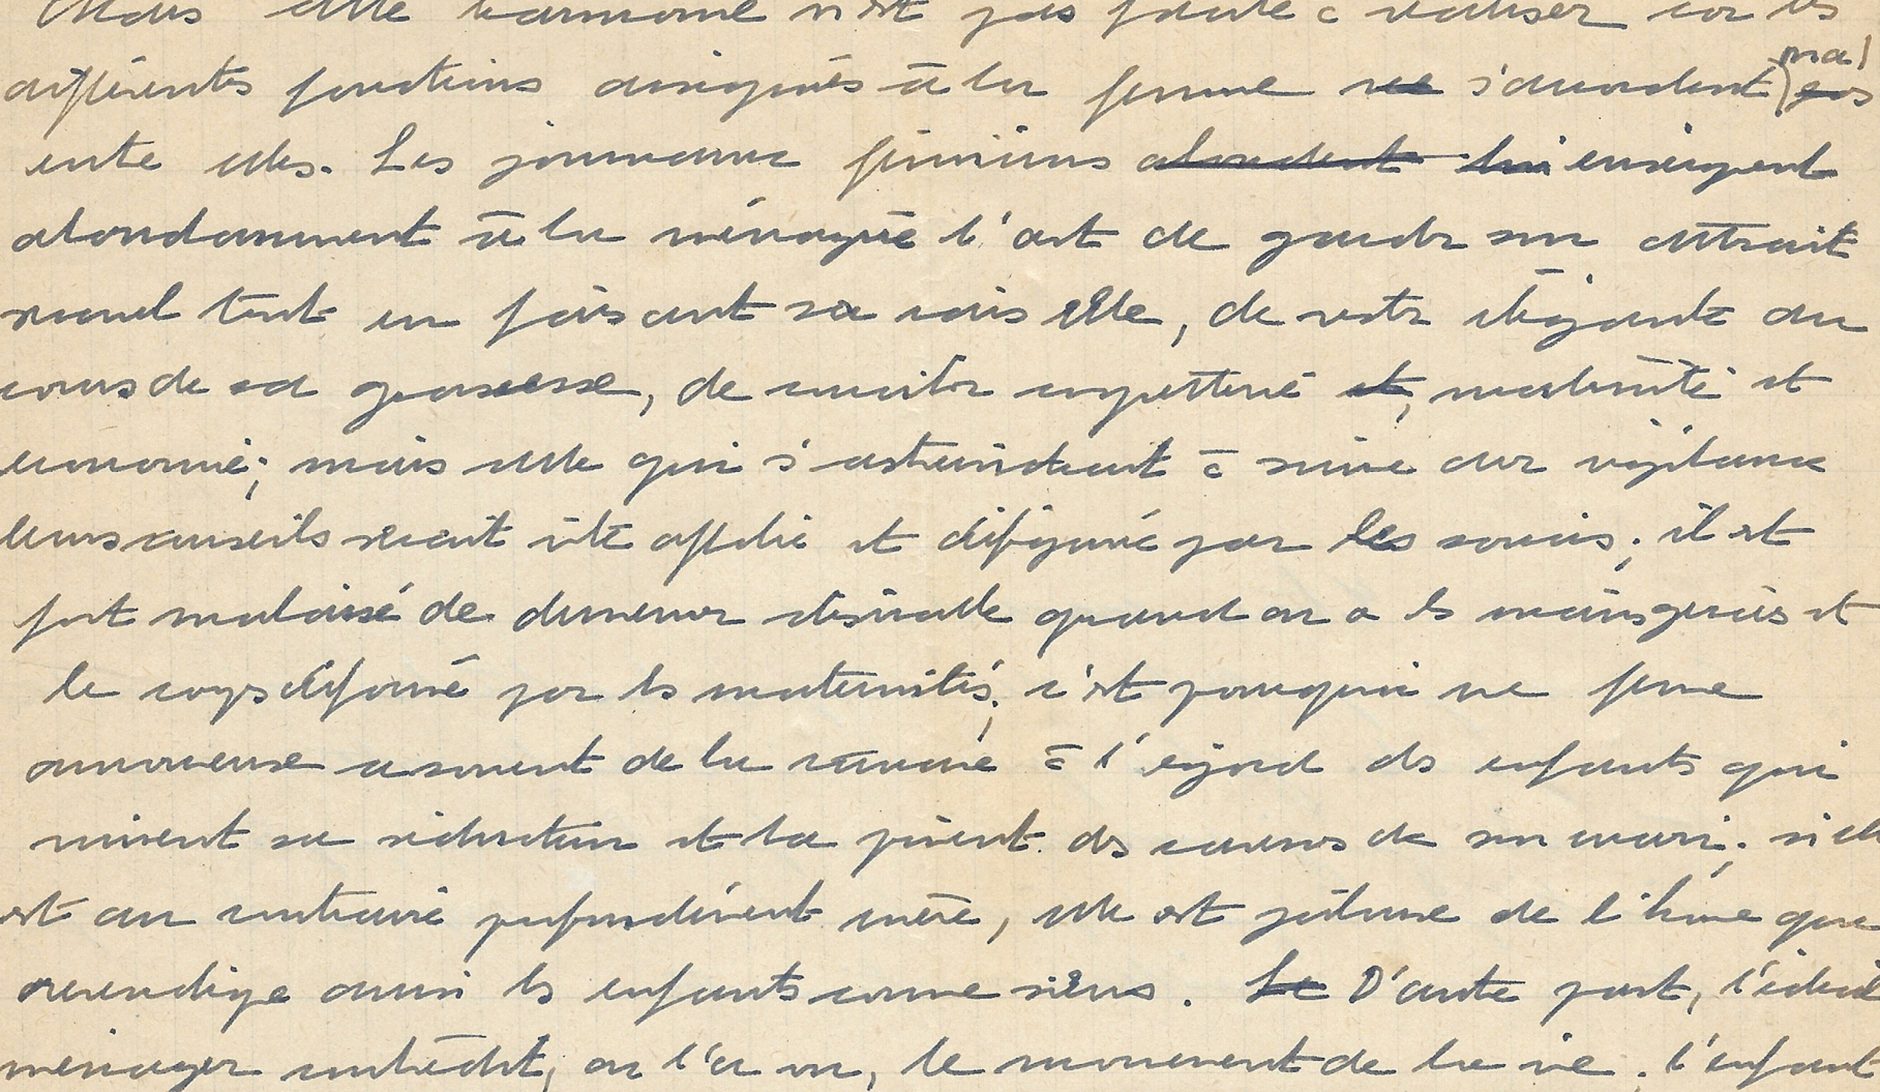 Mais cette harmonie n'est pas facile à réaliser car les
différentes fonctions assignées à la femme ne s'accordent mal pas
entre elles. Les journaux féminins abondent lui enseignent
abondamment à la ménagère l'art de garder son attrait
sexuel tout en faisant sa vaisselle, de rester élégante au
cours de sa grossesse, de concilier coquetterie et, maternité et
économie; mais celle qui s'astreindrait à suivre avec vigilance
leurs conseils serait vite affolée et défigurée par les soucis; il est
fort malaisé de demeurer désirable quand on a les mains gercées et
le corps déformé par les maternités; c'est pourquoi une femme
amoureuse a souvent de la rancune à l'égard des enfants qui
ruinent sa séduction et la privent des caresses de son mari; si elle
est au contraire profondément mère, elle est jalouse de l'homme qui
revendique aussi les enfants comme siens. Le D'autre part, l'idéal
ménager contredit, on l'a vu, le mouvement de la vie; l'enfant